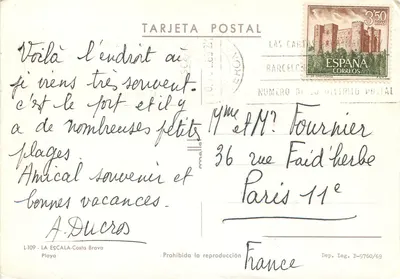 TARJETA POSTAL
Voilà l'endroit où
j'y viens très souvent -
c'est le port et il y
a de nombreuses petites
plages.
Amical souvenir et
bonnes vacances.
A. Ducros
LAS CART
BARCELON
NUMERO DE DISTRITO POSTAL
3,50
PTAS
ESPAÑA
CORREOS
Mme et Mr Fournier
36 rue Faid'herbe
Paris 11e
France
L.109 - LA ESCALA-Costa Brava
Playa
Prohibida la reproducción
Dep. Leg. B-5750/63